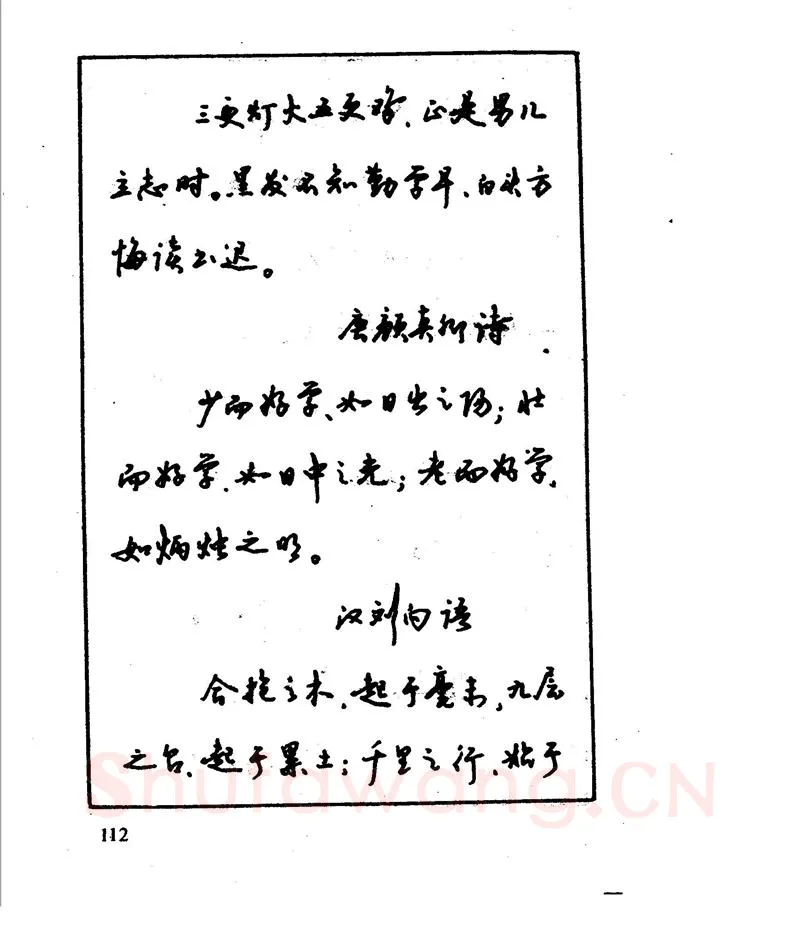 三更灯火五更鸡，正是男儿
立志时。黑发不知勤学早，白头方
悔读书迟。
唐颜真卿诗
少而好学，如日出之阳；壮
而好学，如日中之光；老而好学，
如炳烛之明。
汉刘向语
合抱之木，起于毫末，九层
之台，起于累土；千里之行，始于
Shufawang.CN
112